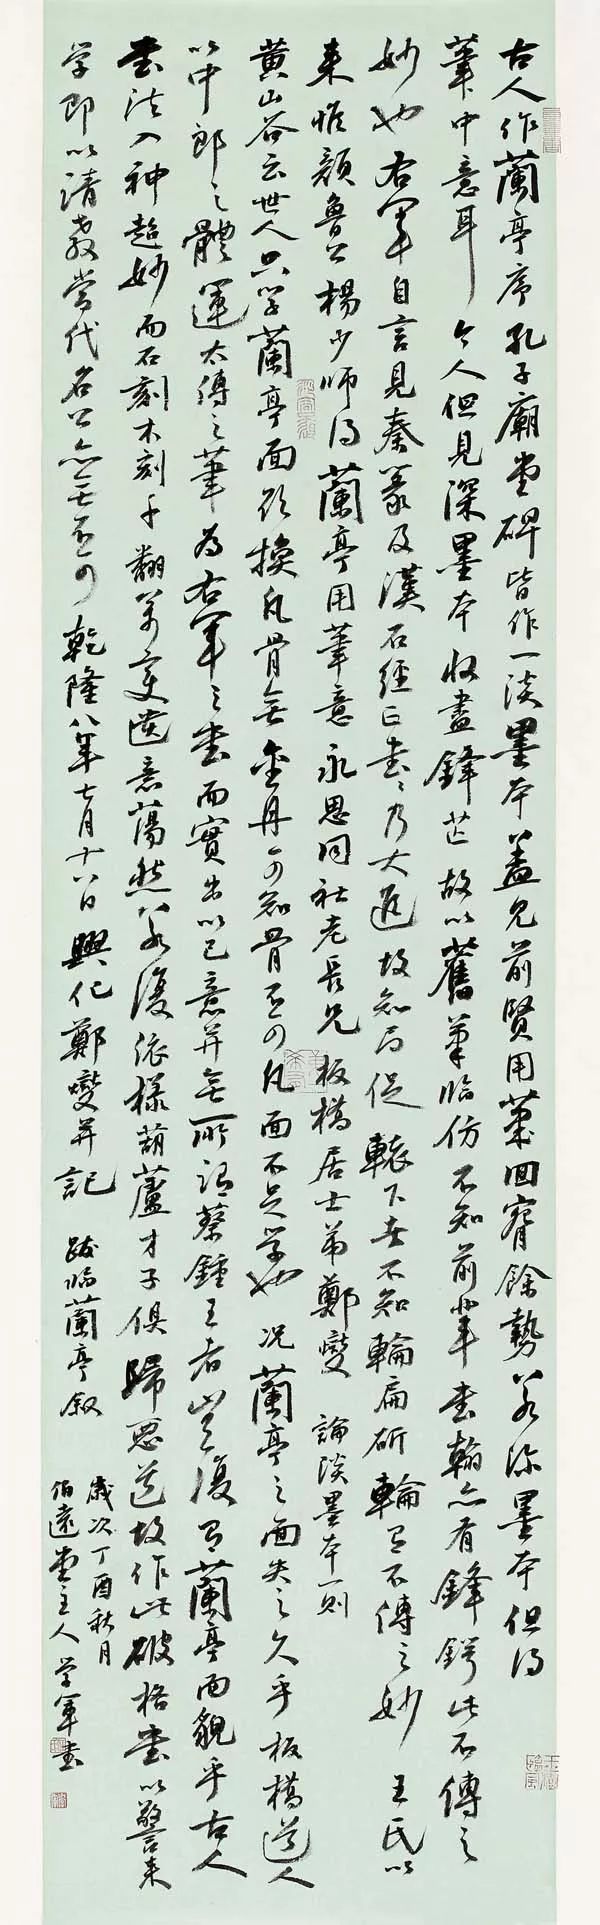 古人作蘭亭序孔子廟堂碑皆作一淡墨本蓋見前賢用筆回腕餘勢若深墨本但得
筆中意耳今人但見深墨本收盡鋒芒故以舊筆臨仿不知前輩書翰亦有鋒鍔此不傳之
妙也右軍自言見秦篆及漢石經正書書乃大進故知局促轅下者不知輪扁斫輪有不傳之妙 王氏以
来惟顔魯公楊少師得蘭亭用筆意永思同社老長兄 板橋居士弟鄭燮 論淡墨本一則
黄山谷云世人只学蘭亭面欲換凡骨無金丹可知骨不可凡面不足学也况蘭亭之面失之久乎板橋道人
以中郎之體運太傅之筆為右軍之書而實出以己意并無所謂蔡鍾王者豈復有蘭亭面貌乎古人
書法入神超妙而石刻木刻千翻萬變遺意蕩然若復依樣葫蘆才子俱歸惡道故作此破格書以警来
学即以請教當代名公亦無不可 乾隆八年七月十八日興化鄭燮并記 跋臨蘭亭叙
歲次丁酉秋月
伯遠堂主人学軍書